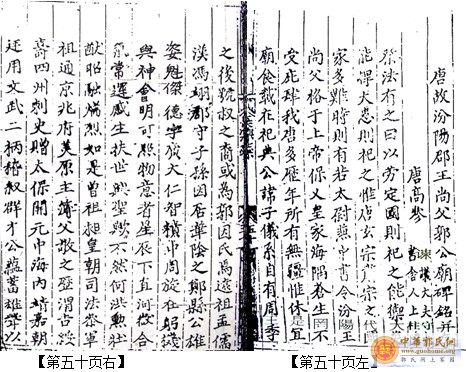 唐故汾陽郡王尚父郭公廟碑銘并
唐高參
諫議大夫
書舍人上柱
祭法有之曰以勞定國則祀之能禦大
能捍大患則祀之惟唐玄宗肅宗之代
家多難時則有若太尉兼中書令汾陽王
尚父格于上帝保乂皇家海隅蒼生罔不
受庇肆我唐多歷年所有無疆惟休是宜
廟食載在祀典公諱子儀系自有周王季
之後虢叔之裔或為郭因氏焉遠祖孟儒
漢馮翊郡守子孫因居華陰之鄭縣公雄
姿魁傑德宇廣大仁智積中周旋在躬德
與神會明可照物意者星辰下直河嶽合
氣常選感生扶世興聖歟不然何其勲
猷昭馳煽烈如是曾祖昶皇朝司法參軍
祖通京兆府美原主簿父敬之歷渭吉綏
壽四州刺史贈太保開元中海內靖嘉朝
廷用文武二柄稽叙群才公蘊蓄雄舉以
【第五十页右】
【第五十页左】
中華郭氏网
www.guohome.org
郭氏网上家園